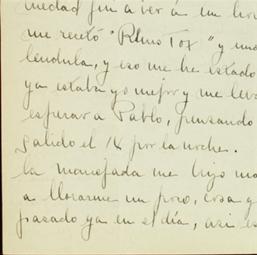 medad fui a ver á un
me recetó "Rhus Tox" y una
léndula, y eso me ha estado
ya estaba yo mejor y me
esperar a Pablo, pensando
salido el 16 por la noche.
la me hizo
a llorarme un poco, cosa q
pasado ya en el día, asi es